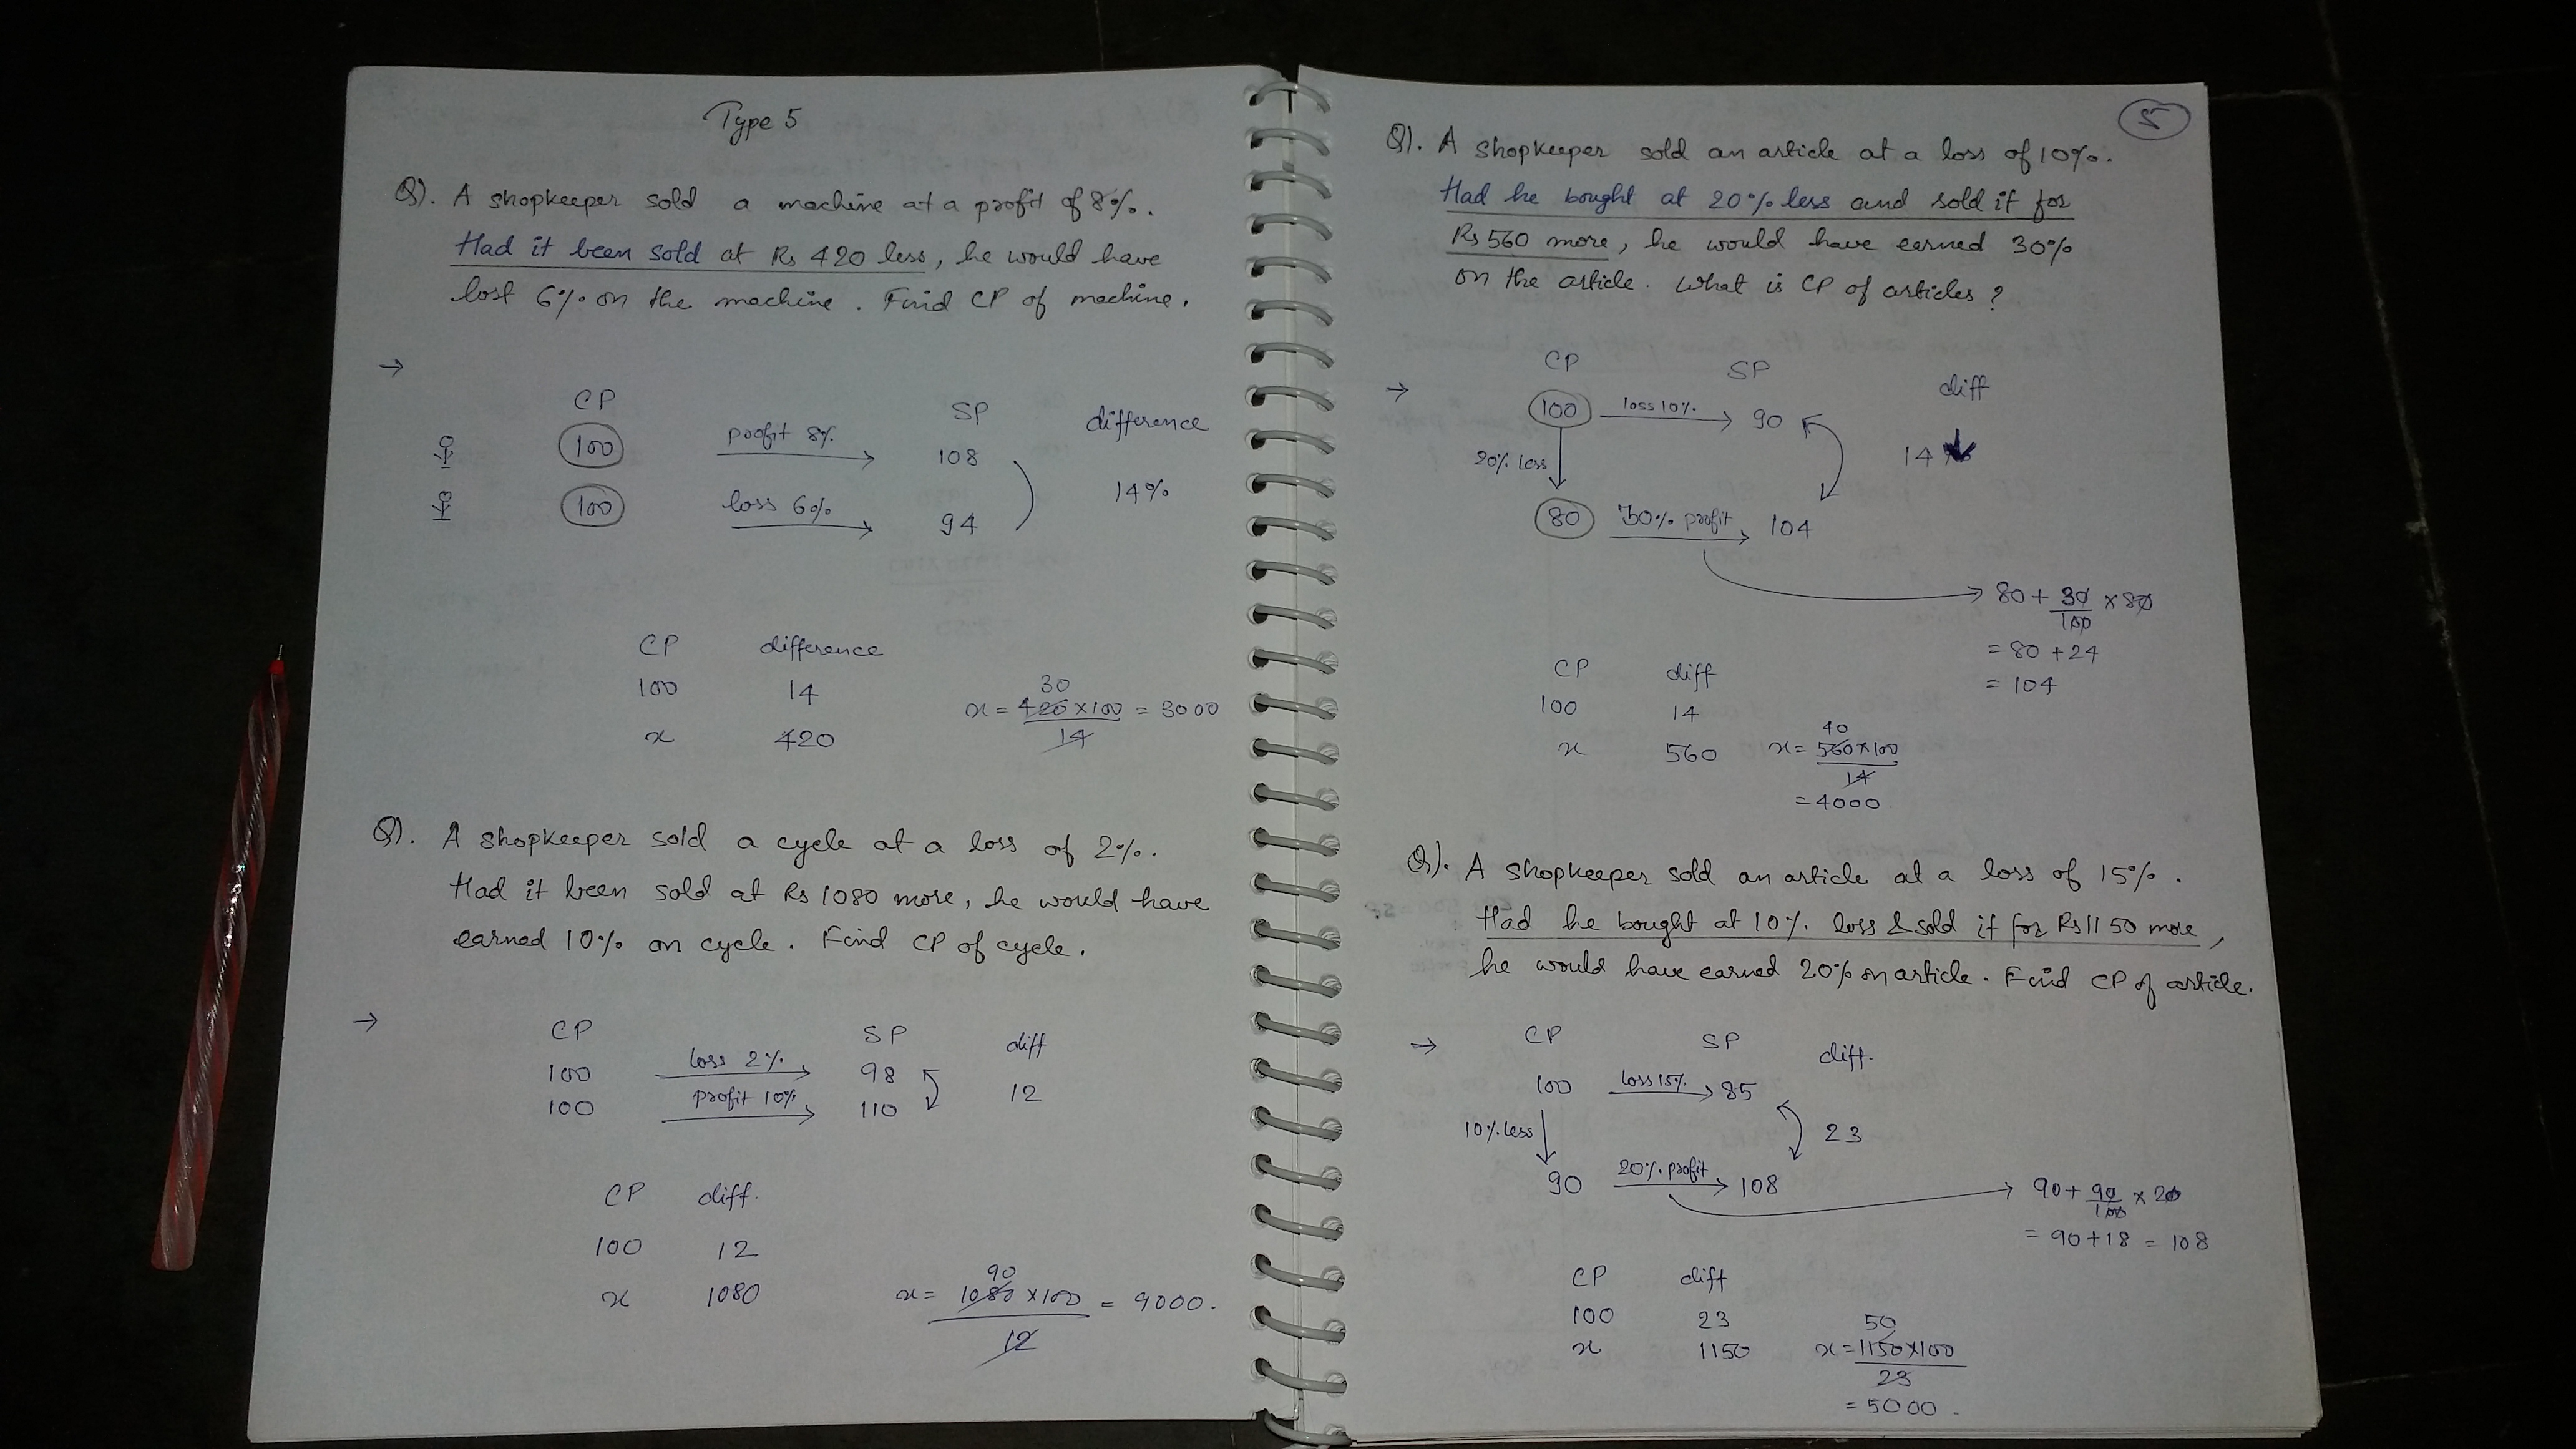 Type 5
Q). A shopkeeper sold a machine at a profit of 8%.
Had it been sold at Rs 420 less, he would have
lost 6% on the machine. Find CP of machine.
→
CP SP difference
100 profit 8% 108
100 loss 6% 94
14%
CP difference
100 14
x 420
30
x = 420 × 100 = 3000
14
Q). A shopkeeper sold a cycle at a loss of 2%.
Had it been sold at Rs 1080 more, he would have
earned 10% on cycle. Find CP of cycle.
→
CP SP diff
100 loss 2% 98
100 profit 10% 110
12
CP diff.
100 12
x 1080
90
x = 1080 × 100 = 9000.
12
5
Q). A shopkeeper sold an article at a loss of 10%.
Had he bought at 20% less and sold it for
Rs 560 more, he would have earned 30%
on the article. What is CP of articles?
→
CP SP diff
100 loss 10% 90
20% loss 14
80 30% profit 104
→ 80 + 30 × 80
100
= 80 + 24
= 104
CP diff
100 14
x 560
40
x = 560 × 100
14
= 4000
Q). A shopkeeper sold an article at a loss of 15%.
Had he bought at 10% loss & sold it for Rs 1150 more,
he would have earned 20% on article. Find CP of article.
→
CP SP diff.
100 loss 15% → 85
10% less 23
90 20% profit → 108
→ 90 + 90 × 20
100
= 90 + 18 = 108
CP diff
100 23
x 1150
50
x = 1150 × 100
23
= 5000.